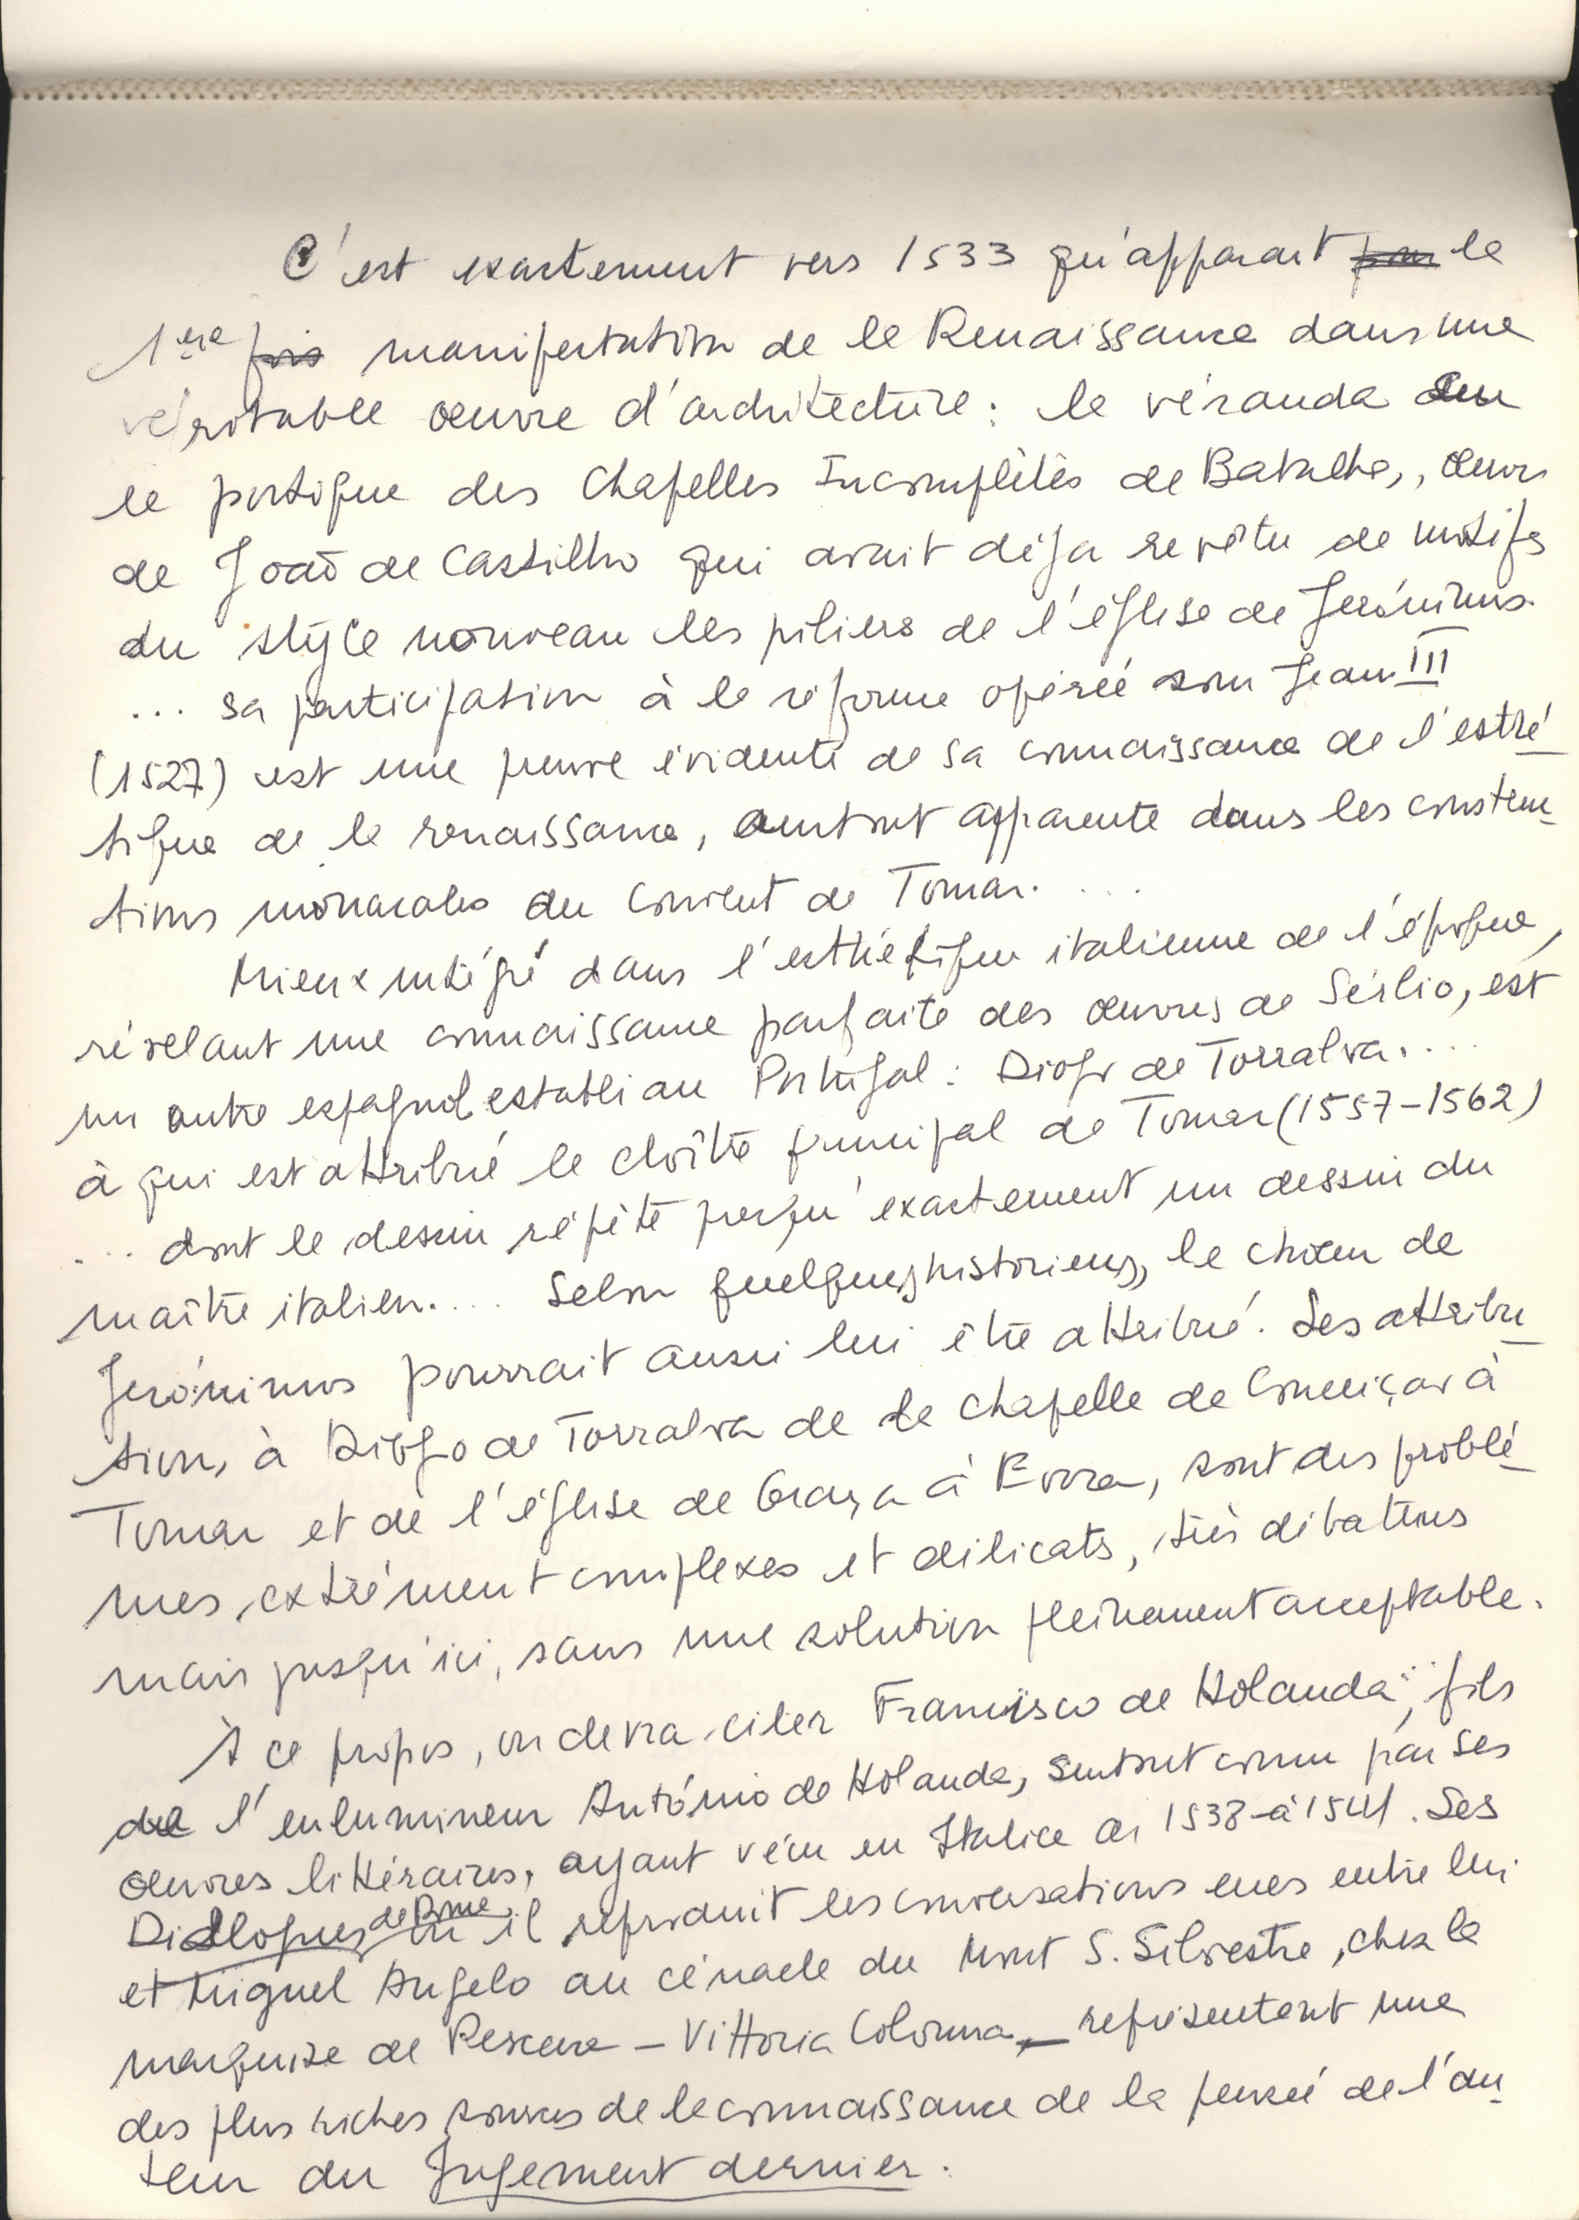 C'est exactement vers 1533 qu'apparait la
1ère fois manifestation de la Renaissance dans une
véritable oeuvre d'architecture: la véranda
le portique des Chapelles Incomplètès de Batalha, oeuvre
de João de Castilho qui avait déja revêtu de motifs
du style nouveau les piliers de l'église de Jerónimos.
... sa participation à la réforme opéréé sous Jean III
(1527) est une preuve évidente de sa connaissance de l'esthé
tique de la renaissance, surtout apparente dans les construc
tions monacales du Convent de Tomar. ...
Mieux intégré dans l'esthétique italienne de l'époque,
révelant une connaissance parfaite des oeuvres de Sérlio, est
un autre espagnol establi au Portugal: Diogo de Torralva. ...
à qui est attribué le cloître principal de Tomar (1557-1562)
... dont le dessin répète presqu'exactement un dessin du
maître italien. ... Selon quelques historiens, le choeur de
Jerónimos pourrait aussi lui être attribué. Les attribu
tion, à Diogo de Torralva de la chapelle de Conceição à
Tomar et de l'église de Graça à Évora, sont des problé
mes extrément complexes et délicats, très débattus
mais jusqu'ici, sans une solution pleinement acceptable.
A ce propos, on devra citer Francisco de Holanda, fils
de l'enlumineur António de Holanda, surtout connu par ses
oeuvres littéraires, ayant vécu en Italie de 1538 à 1541. Ses
Diallogues de Rome où il reproduit les conversations eues entre lui
et Miguel Angelo au cénacle du Mont S. Silvestre, chez la
marquise de Pescara - Vittoria Colonna - représentent une
des plus riches sources de la connaissance de la pensée de l'au
teur du Jugement dernier.